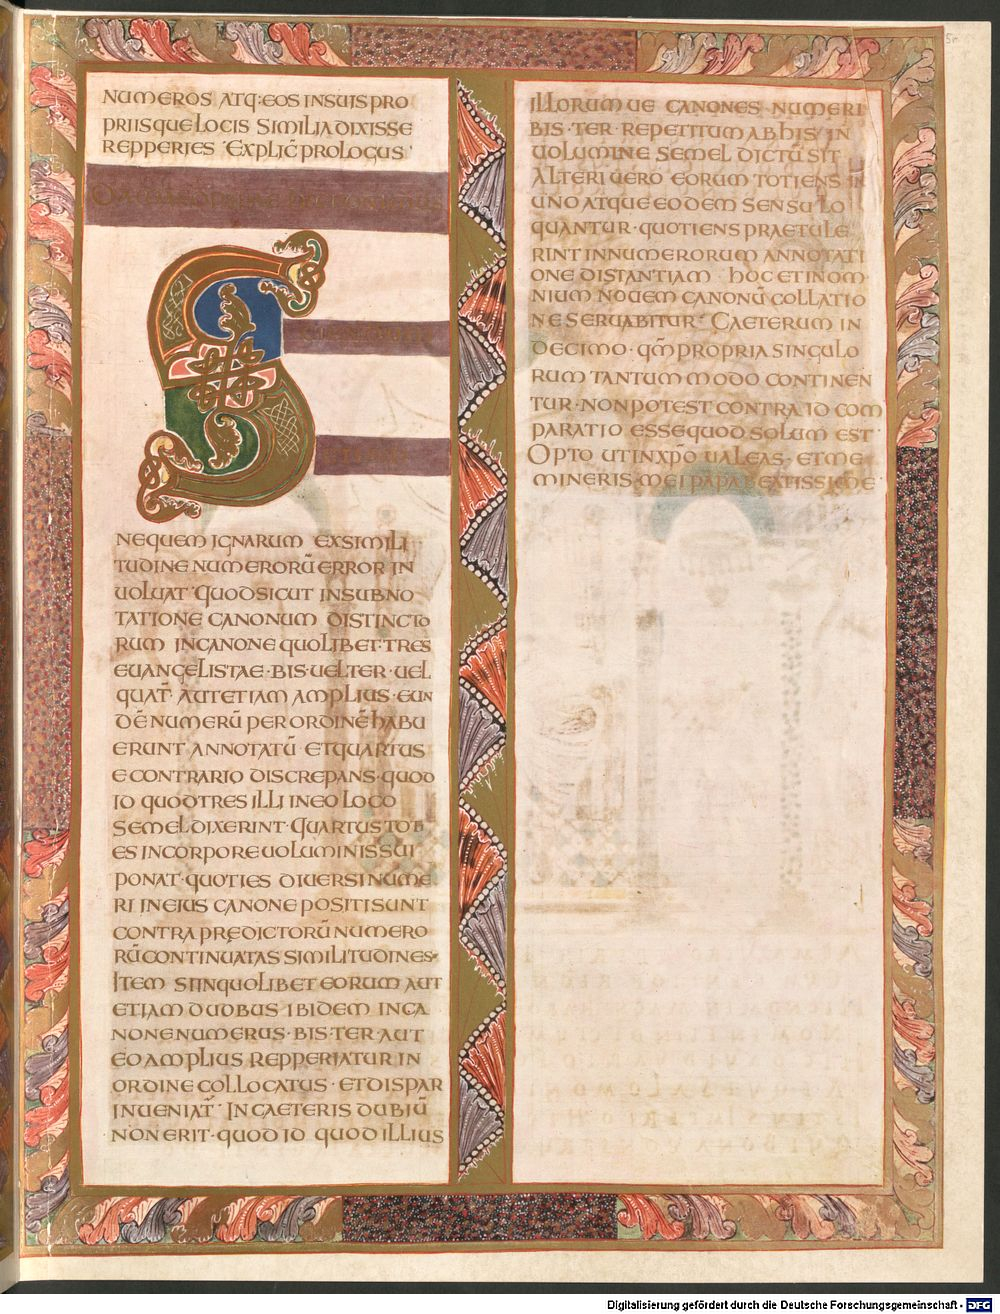 NUMEROS ATQ:EOS INSUIS PRO
PRIIS QUE LOCIS SIMILIA DIXISSE
REPPERIES EXPLIC̄ PROLOGUS
DAMASO PAPAE HIERONIMUS
S
NEQUEM IGNARUM EXSIMILI
TUDINE NUMERORŪ ERROR IN
UOLUAT QUODSICUT INSUBNO
TATIONE CANONUM DISTINCTO
RUM INCANONE QUOLIBET·TRES
EUANGELISTAE·BIS·UELTER·UEL
QUAT̄·AUTETIAM AMPLIUS·EUN
DĒ NUMERŪ PER ORDINĒ HABU
ERUNT ANNOTATŪ ETQUARTUS
E CONTRARIO DISCREPANS·QUOD
ID QUODTRES ILLI INEO LOCO
SEMEL DIXERINT·QUARTUS TOB
ES INCORPORE UOLUMINIS SUI
PONAT·QUOTIES DIUERSI NUME
RI INEIUS CANONE POSITI SUNT
CONTRA PREDICTORŪ NUMERO
RŪ CONTINUATAS SIMILITUDINES·
ITEM SIINQUOLIBET EORUM AUT
ETIAM DUOBUS IBIDEM INCA
NONE NUMERUS·BIS·TER AUT
EO AMPLIUS REPPERIATUR IN
ORDINE COLLOCATUS·ETDISPAR
INUENIAT̄ INCAETERIS DUBIŪ
NON ERIT·QUOD ID QUOD ILLIUS
ILLORUM UE CANONES·NUMERI
BIS·TER·REPETITUM AB HIS IN
UOLUMINE SEMEL DICTŪ SIT
ALTERI UERO EORUM TOTIENS IN
UNO ATQUE EODEM SENSU LO
QUANTUR·QUOTIENS PRAETULE
RINT INNUMERORUM ANNOTATI
ONE DISTANTIAM·HOC ETINOM
NIUM NOUEM CANONŪ COLLATIO
NE SERUABITUR·CAETERUM IN
DECIMO·QM̄ PROPRIA SINGULO
RUM TANTUM MODO CONTINEN
TUR·NONPOTEST CONTRA ID COM
PARATIO ESSE·QUOD SOLUM EST·
OPTO UTINXP̄O UALEAS·ETME
MINERIS·MEI PAPA BEATISSIME·
Digitalisierung gefördert durch die Deutsche Forschungsgemeinschaft - DFG